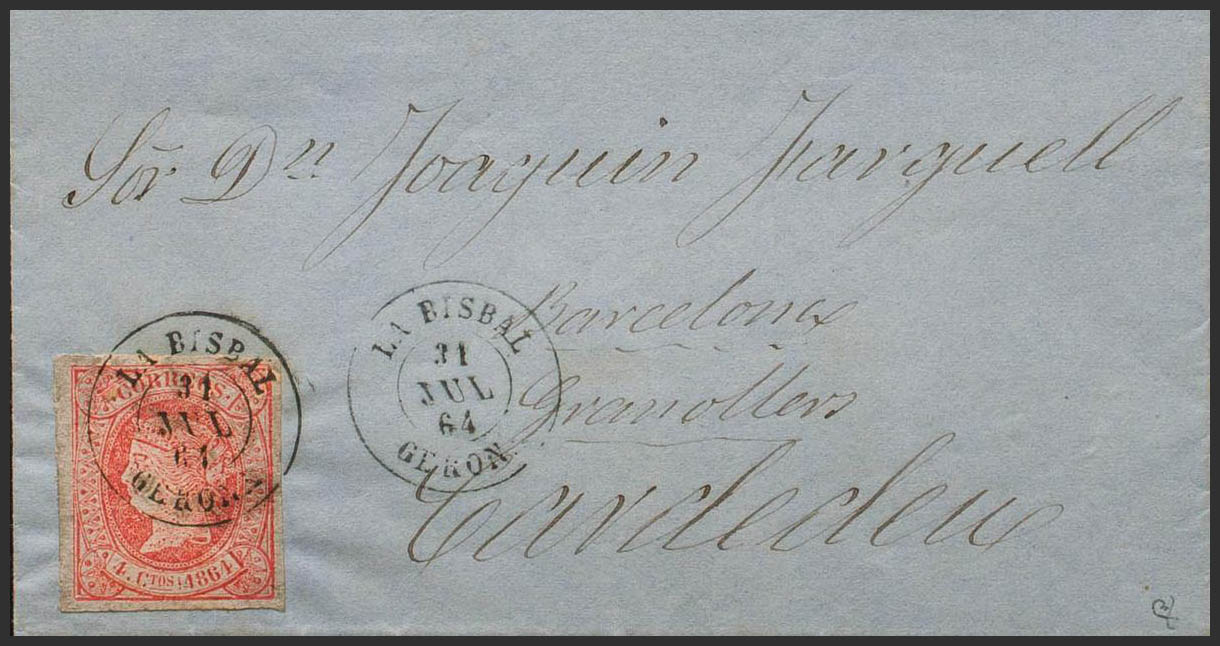 Sor Dn Joaquin Farguell
Barcelona
Granollers
Cardedeu
LA BISBAL
31
JUL
64
GERONA
LA BISBAL
31
JUL
64
GERONA
CORREOS.
4. CTOS 1864